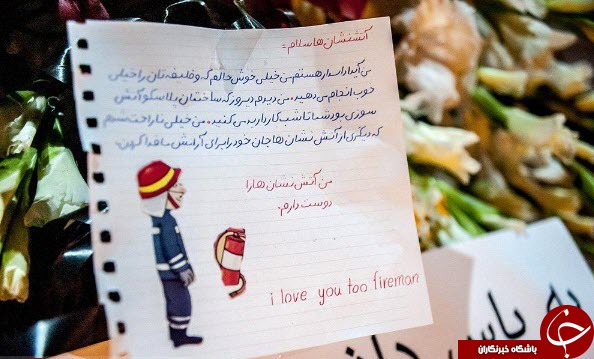 آتشنشان ها سلام =
من آیدا راسدار هستم من خیلی خوش حالم که وظیفه تان را خیلی
خوب انجام می دهید. من دیدم دیروز که ساختمان پلاسکو آتش
سوزی بود شما تا شب کار می کنید. من خیلی ناراحت شدم
که دیگری از آتش نشان ها جان خود را برای آرامش ما فدا کردن.
من آتش نشان ها را
دوست دارم.
i love you too fireman
به پاس
باشگاه خبرنگاران